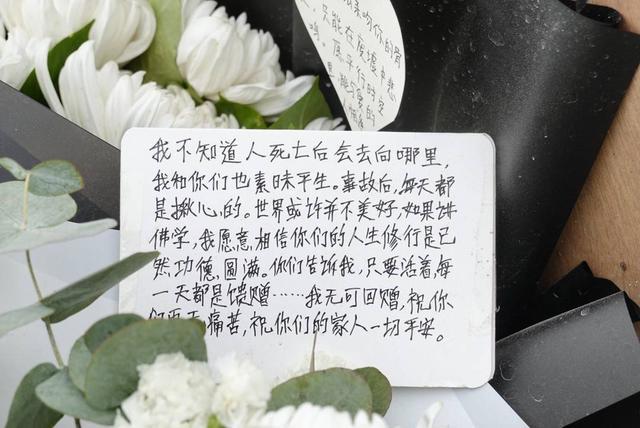 你的骨
只能在废墟中悲
鸣。愿平行时空
里,能与爱的
我不知道人死亡后会去向哪里,
我和你们也素昧平生。事故后,每天都
是揪心的。世界或许并不美好,如果讲
佛学,我愿意相信你们的人生修行是已
然功德圆满。你们告诉我,只要活着,每
一天都是馈赠……我无可回赠,祝你
痛苦,祝你们的家人一切平安。